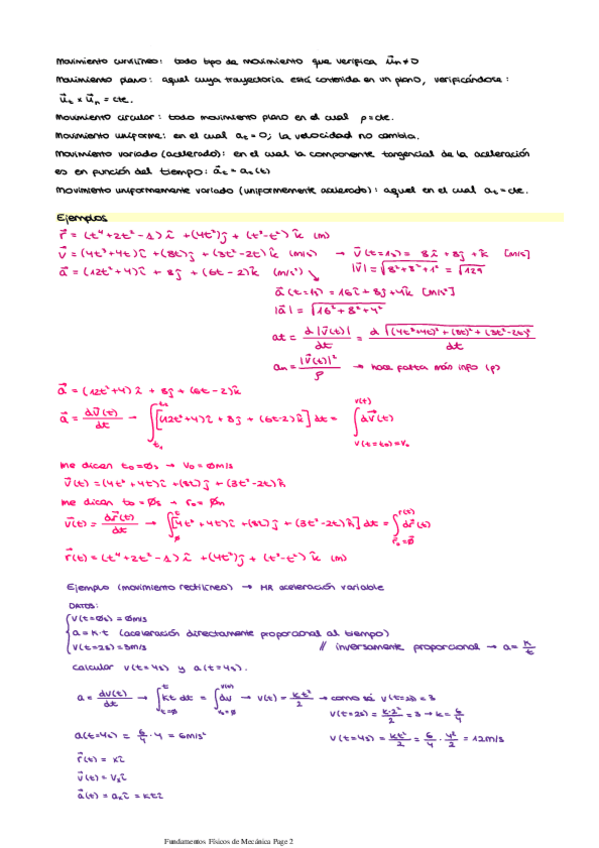 Movimiento curvilíneo: todo tipo de movimiento que verifica u⃗n ≠ 0
Movimiento plano: aquel cuya trayectoria está contenida en un plano, verificándose:
u⃗t x u⃗n = cte.
Movimiento circular: todo movimiento plano en el cual ρ=cte.
Movimiento uniforme: en el cual at=0; la velocidad no cambia.
Movimiento variado (acelerado): en el cual la componente tangencial de la aceleración
es en función del tiempo: a⃗t = at(t)
Movimiento uniformemente variado (uniformemente acelerado): aquel en el cual at=cte.
Ejemplos
r⃗ = (t⁴+2t²-1)î + (4t²)ĵ + (t³-t²)k̂ (m)
v⃗ = (4t³+4t)î + (8t)ĵ + (3t²-2t)k̂ (m/s) → v⃗(t=1s) = 8î + 8ĵ + k̂ [m/s]
|v⃗| = √(8²+8²+1²) = √129
a⃗ = (12t²+4)î + 8ĵ + (6t-2)k̂ (m/s²) ↘
a⃗(t=1s) = 16î + 8ĵ + 4k̂ [m/s²]
|a⃗| = √(16²+8²+4²)
at = d|v⃗(t)|/dt = d√((4t³+4t)²+(8t)²+(3t²-2t)²)/dt
an = |v⃗(t)|²/ρ → hace falta más info (ρ)
a⃗ = (12t²+4)î + 8ĵ + (6t-2)k̂
a⃗ = dv⃗(t)/dt → ∫_{t₀}^{t₁} [(12t²+4)î + 8ĵ + (6t-2)k̂] dt = ∫_{v(t=t₀)=v₀}^{v(t)} dv⃗(t)
me dicen t₀=0s → v₀=0m/s
v⃗(t) = (4t³+4t)î + (8t)ĵ + (3t²-2t)k̂
me dicen t₀=0s → r₀=0m
v⃗(t) = dr⃗(t)/dt → ∫_{0}^{t} [(4t³+4t)î + (8t)ĵ + (3t²-2t)k̂] dt = ∫_{r₀=0}^{r(t)} dr⃗(t)
r⃗(t) = (t⁴+2t²-1)î + (4t²)ĵ + (t³-t²)k̂ (m)
Ejemplo (movimiento rectilíneo) → MR aceleración variable
DATOS:
v(t=0s) = 0m/s
a=k·t (aceleración directamente proporcional al tiempo)
v(t=2s)=3m/s // inversamente proporcional → a=k/t
calcular v(t=4s) y a(t=4s).
a = dv(t)/dt → ∫_{t=0}^{t} kt dt = ∫_{v₀=0}^{v(t)} dv → v(t) = kt²/2 → como sé v(t=2s)=3
v(t=2s) = k·2²/2 = 3 → k = 6/4
a(t=4s) = 6/4 · 4 = 6m/s² v(t=4s) = kt²/2 = 6/4 · 4²/2 = 12m/s
r⃗(t) = xî
v⃗(t) = vxî
a⃗(t) = axî = ktî
Fundamentos Físicos de Mecánica Page 2